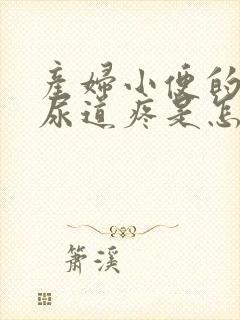 產婦小便的
尿道疼是怎
簫溪